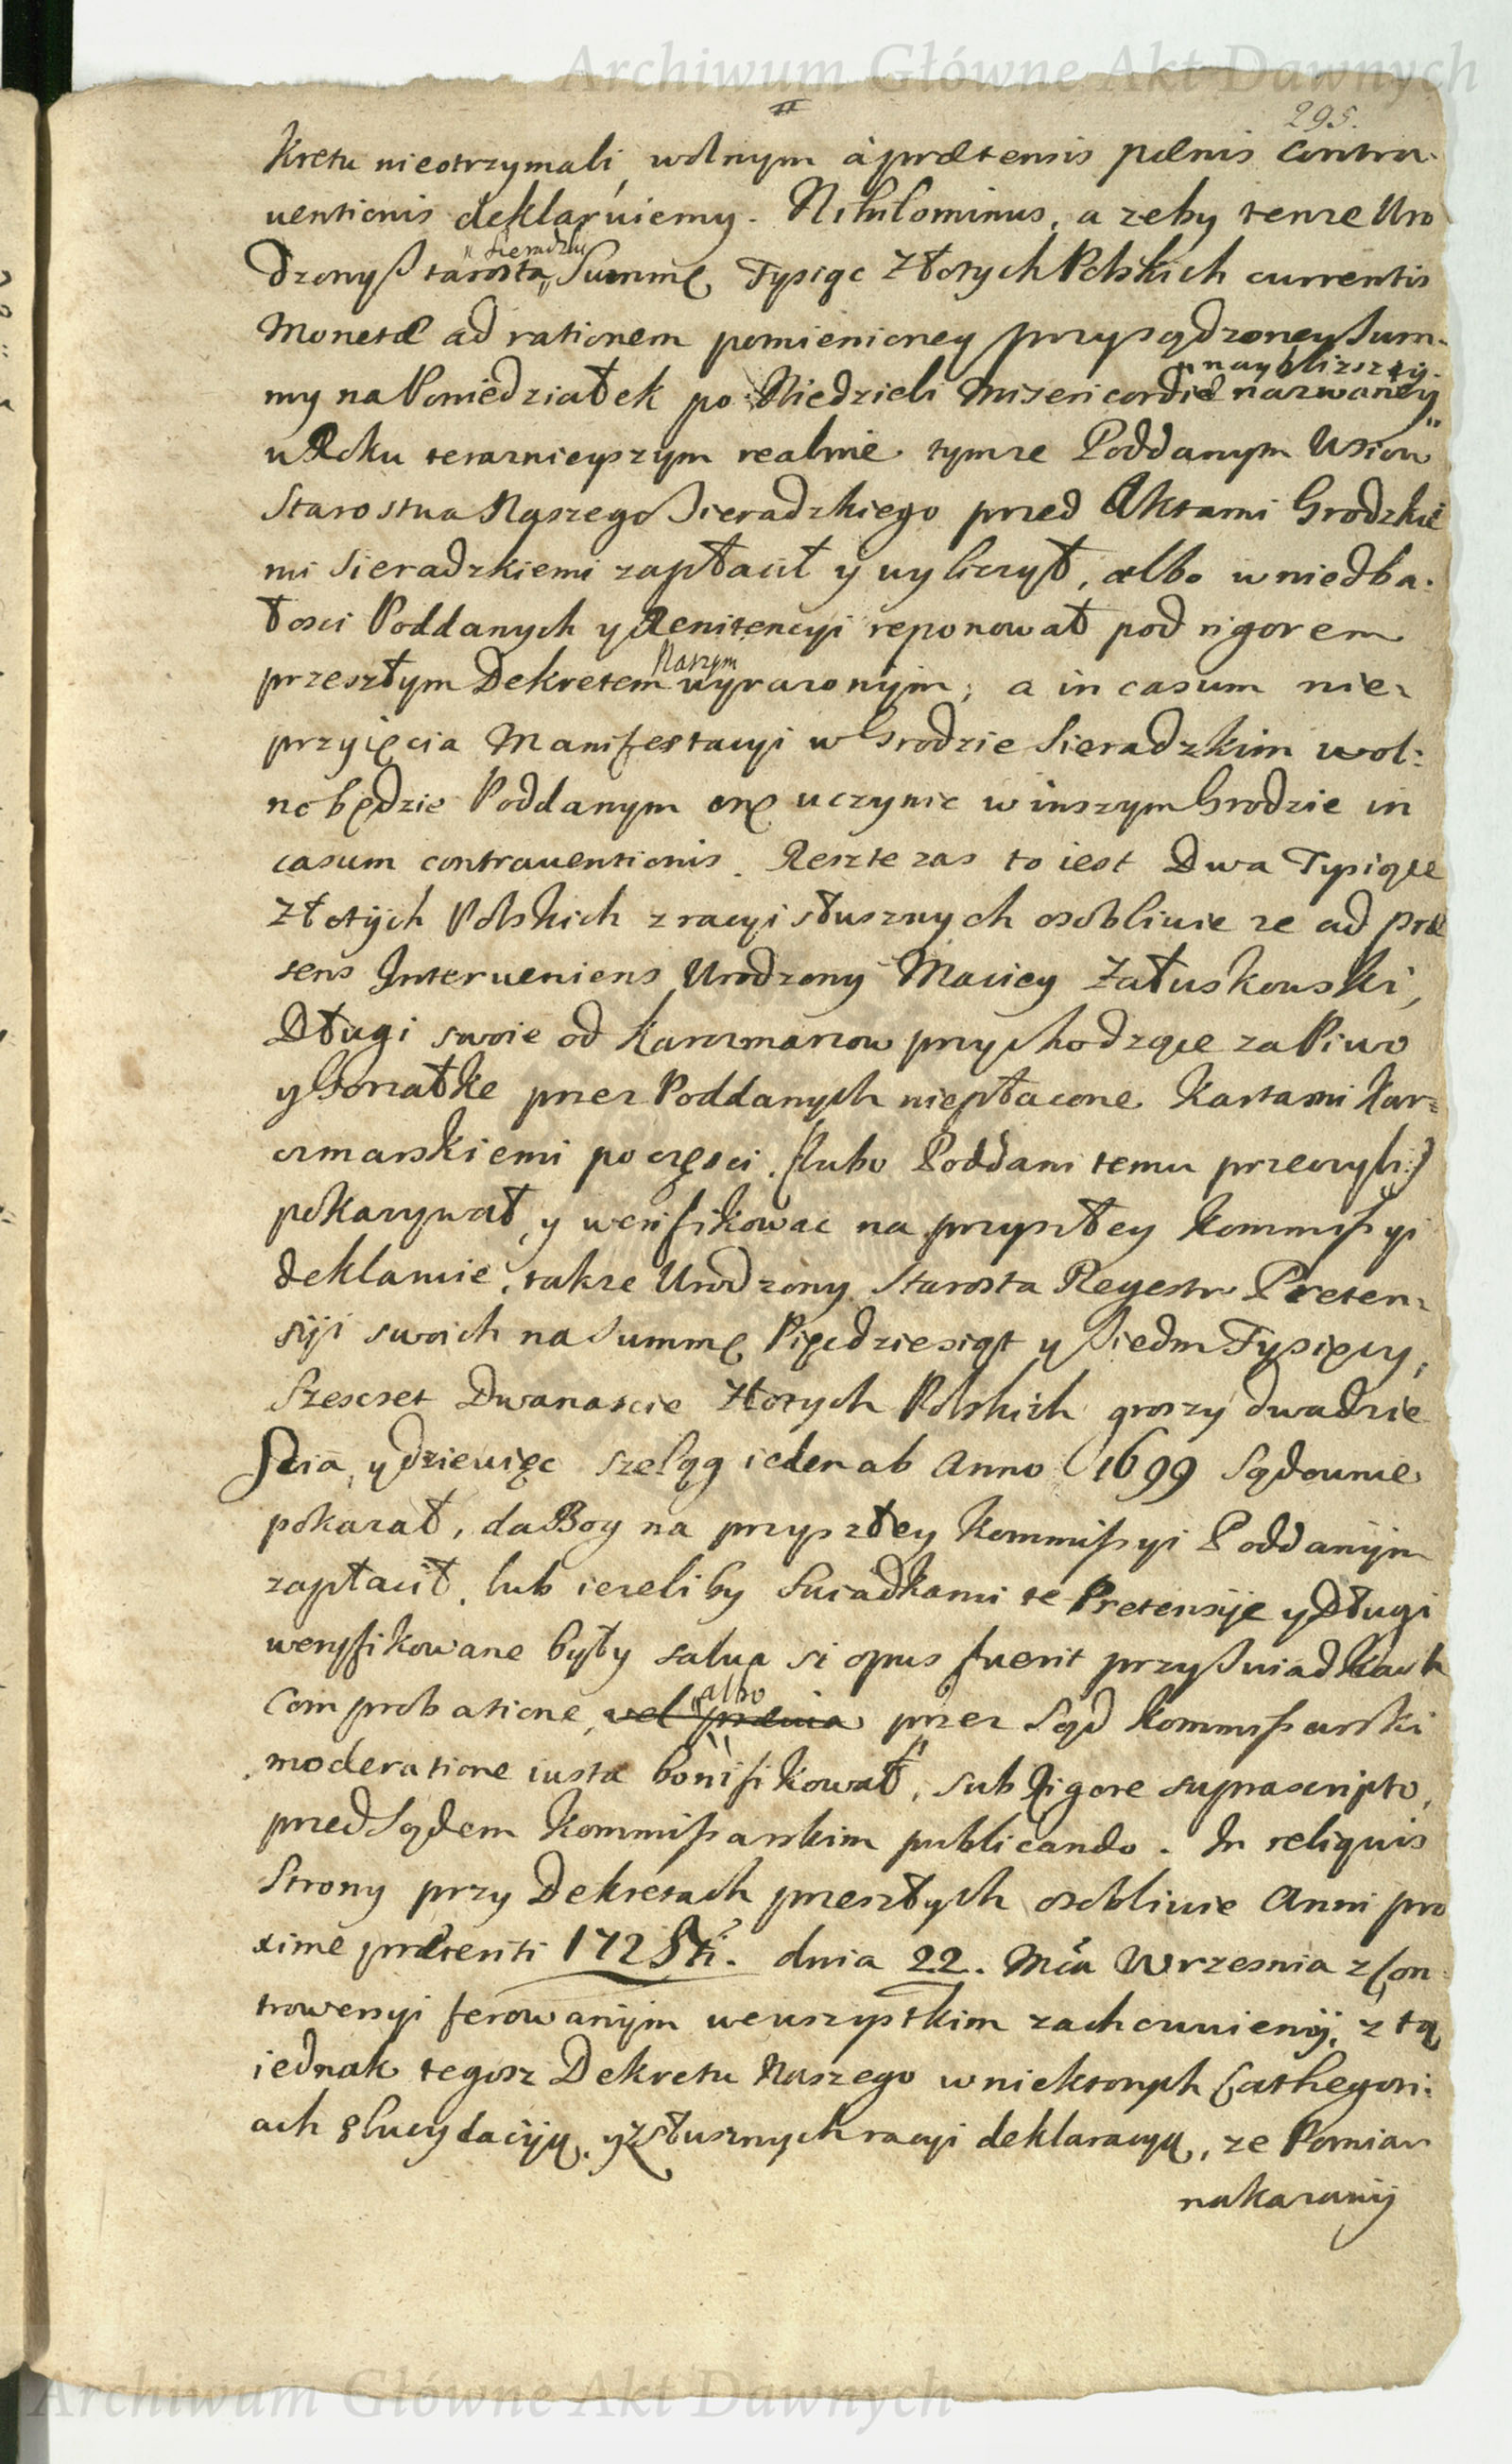 Archiwum Główne Akt Dawnych
295.
kretu nieotrzymali, wolnym à prætensis pœnis contra-
uentionis deklaruiemy. Nihilominus, a zeby tenze Uro
dzony Starosta Sieradzki Summę Tysiąc Złotych Polskich currentis
Monetæ ad rationem pomienioney przysądzoney Sum-
my na Poniedziałek po Niedzieli Misericordiæ nazwaney nayblizszey
w Roku teraznieyszym realnie tymze Poddanym Wsiow
Starostwa Naszego Sieradzkiego przed Aktami Grodzkie
mi Sieradzkiemi zapłacił y wyliczył, albo w niedba-
łosci Poddanych y Renitencyi reponował pod rigorem
przeszłym Dekretem Naszym wyrazonym; a in casum nie-
przyięcia Manifestacyi w Grodzie Sieradzkim wol:
no będzie Poddanym onę uczynic w inszym Grodzie in
casum contrauentionis. Reszte zas to iest Dwa Tysiące
Złotych Polskich z racyi słusznych osobliwie ze ad præ
sens Interueniens Urodzony Maciey Załuskowski,
Długi swoie od Karczmarzow przychodzące za Piwo
y Gorzałke przez Poddanych niepłacone Kartami Kar=
czmarskiemi po częsci (lubo Poddani temu przeczyli:)
pokazywał, y werifikowac na przyszłey Kommissyi
deklaruie, takze Urodzony Starosta Regestr Preten-
siji swoich na Summę Pięcdziesiąt y Siedm Tysięcy,
Szescset Dwanascie Złotych Polskich groszy dwadzie
scia, y dziewięc szeląg ieden ab Anno 1699 Sądownie
pokazał, da Bog na przyszłey Kommissyi Poddanym
zapłacił, lub iezeliby Swiadkami te Pretensije y Długi
weryfikowane były salua si opus fuerit przy Swiadkach
comprobatione, vel albo przez Sąd Kommissarski
moderatione iusta bonifikował, sub Rigore suprascripto,
przed Sądem Kommissarskim publicando. In reliquis
Strony przy Dekretach przeszłych osobliwie Anni pro
xime præteriti 1725ti. dnia 22. Mca Wrzesnia z Con
trowersyi ferowanym we wszystkim zachowuiemy, z tą
iednak tegosz Dekretu Naszego w niektorych Cathegori:
ach elucydacyją, y z słusznych racyi deklaracyą, ze Pomiar
nakazany
Archiwum Główne Akt Dawnych